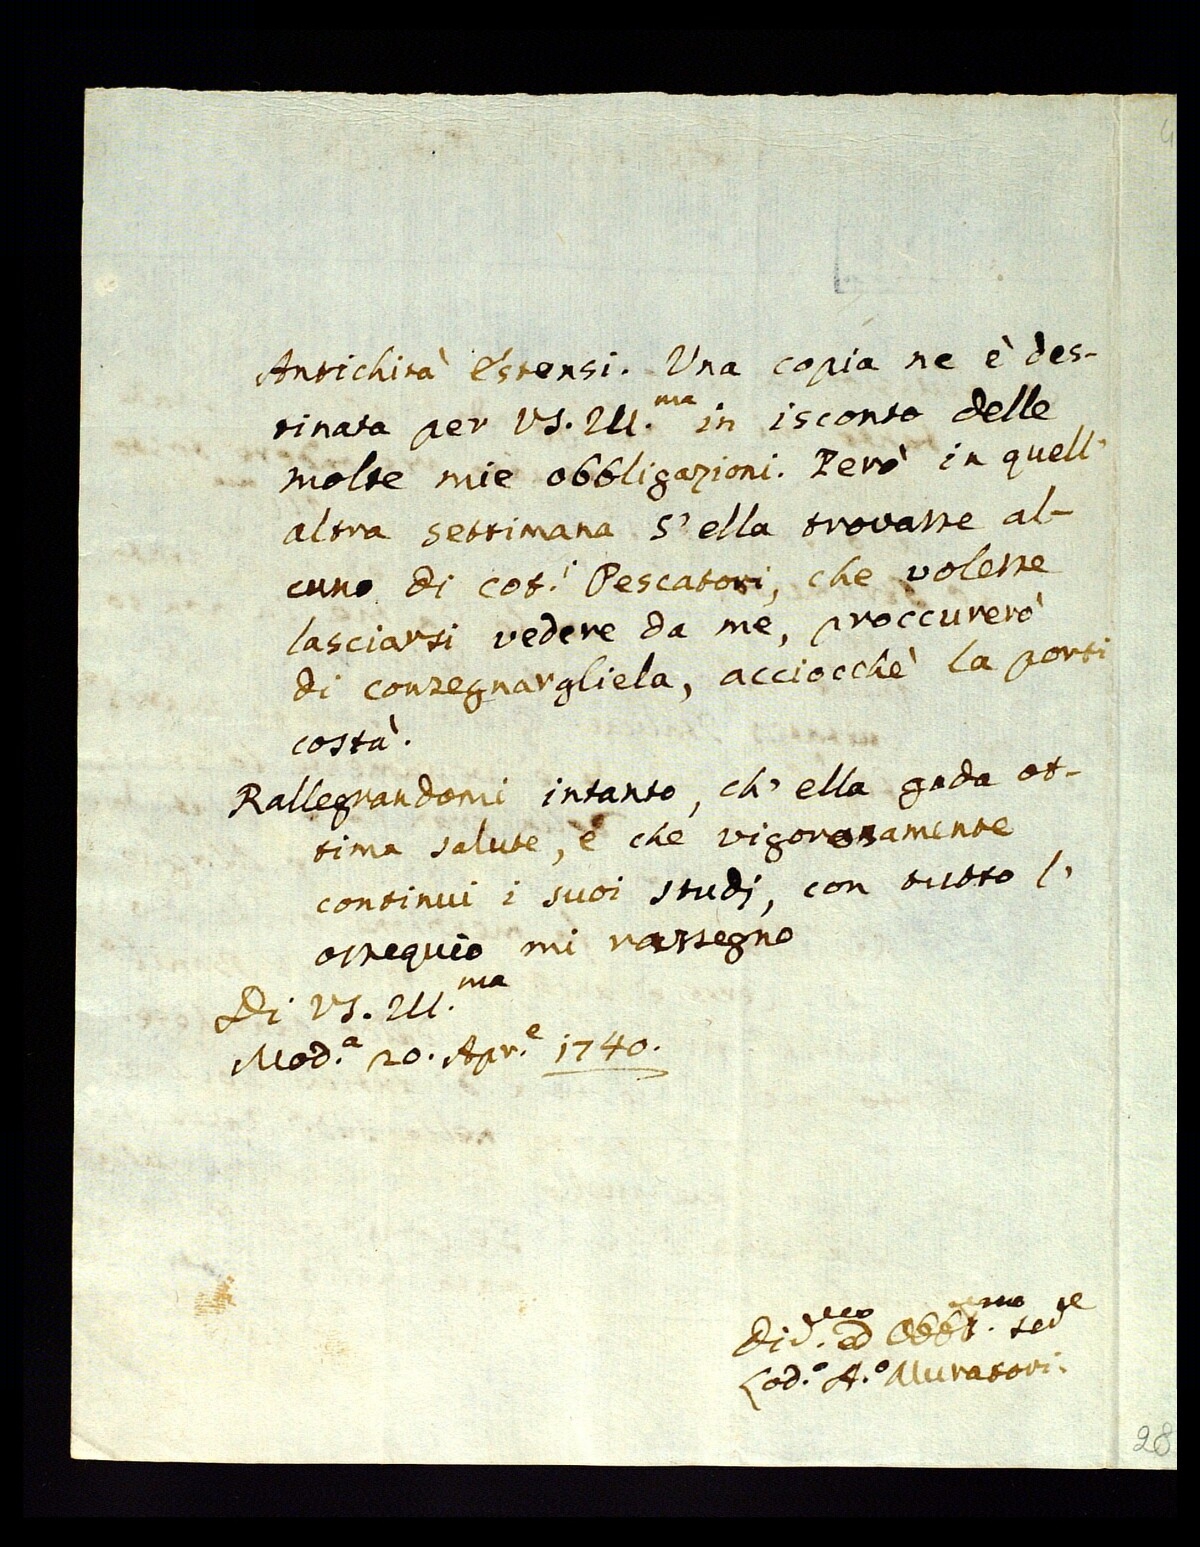 Antichità Estensi. Una copia ne è des-
tinata per VS. Ill.ma in isconto delle
molte mie obbligazioni. Però in quell'
altra settimana s'ella trovasse al-
cuno di cot.i Pescatori, che volesse
lasciarsi vedere da me, proccurerò
di consegnargliela, acciocchè la porti
costà.
Rallegrandomi intanto, ch'ella goda ot-
tima salute, e che vigorosamente
continui i suoi studj, con tutto l'
ossequio mi rassegno
Di VS. Ill.ma
Mod.a 20. Apr.e 1740.
ed Obbl.
Lod.o A.o Muratori.
28